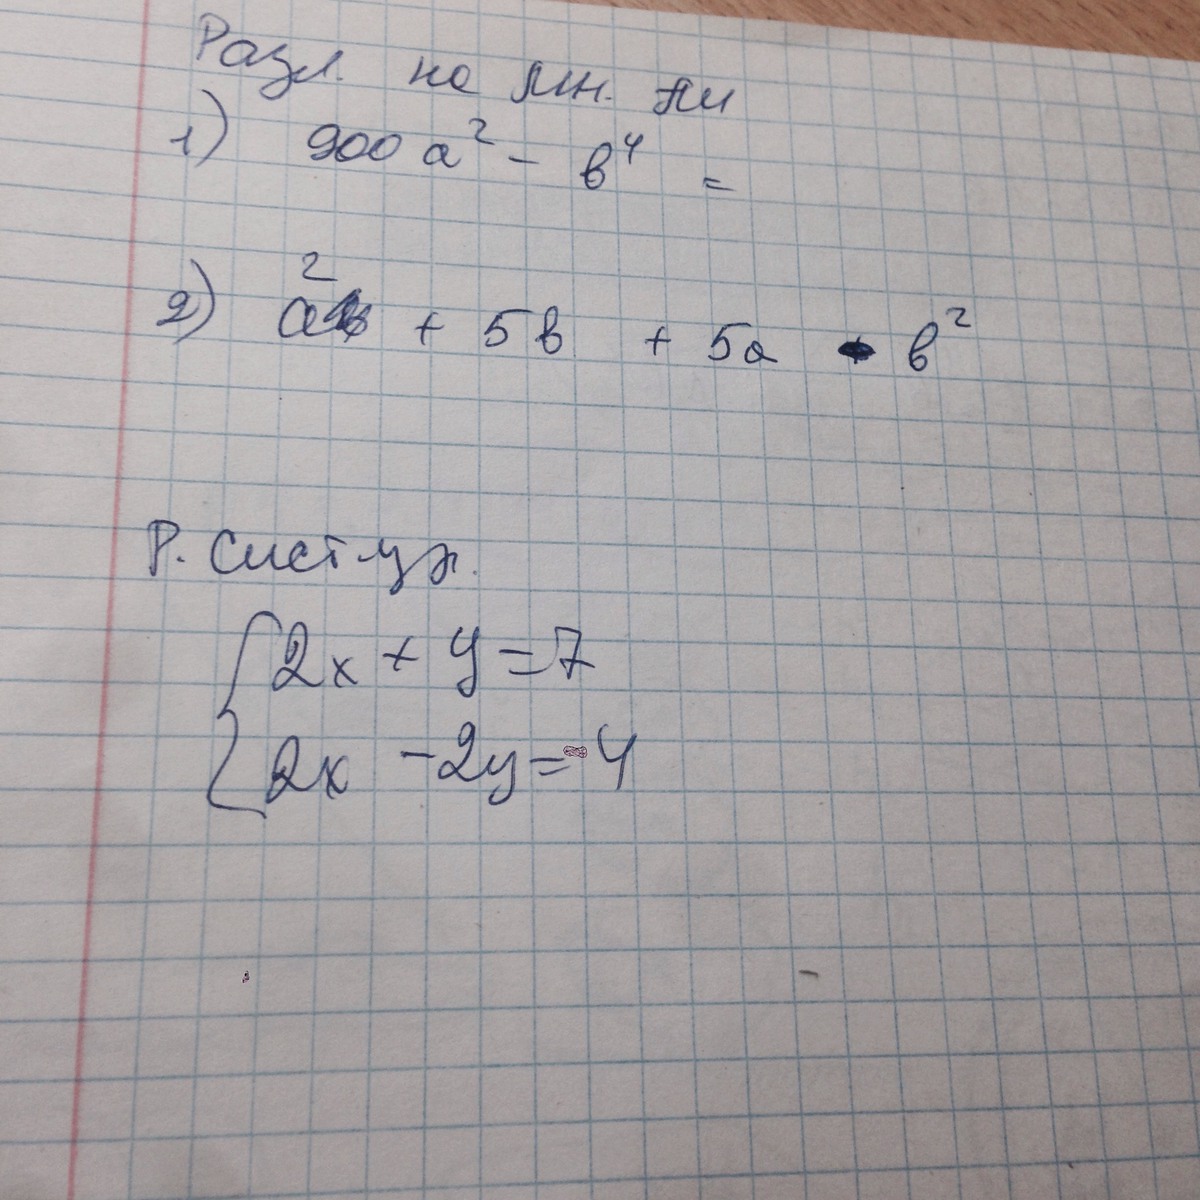 Разл. на мн. ли
1) 900 а² - в⁴ =
2) а² + 5в + 5а - в²
Р. сист ур.
2x + y = 7
2x - 2y = 4